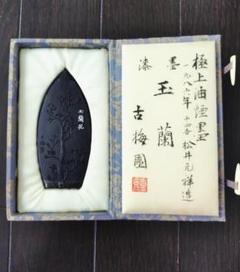 極上油煙墨
一九八六年 松井元祥造
墨
玉蘭
漆
古梅園
玉蘭花